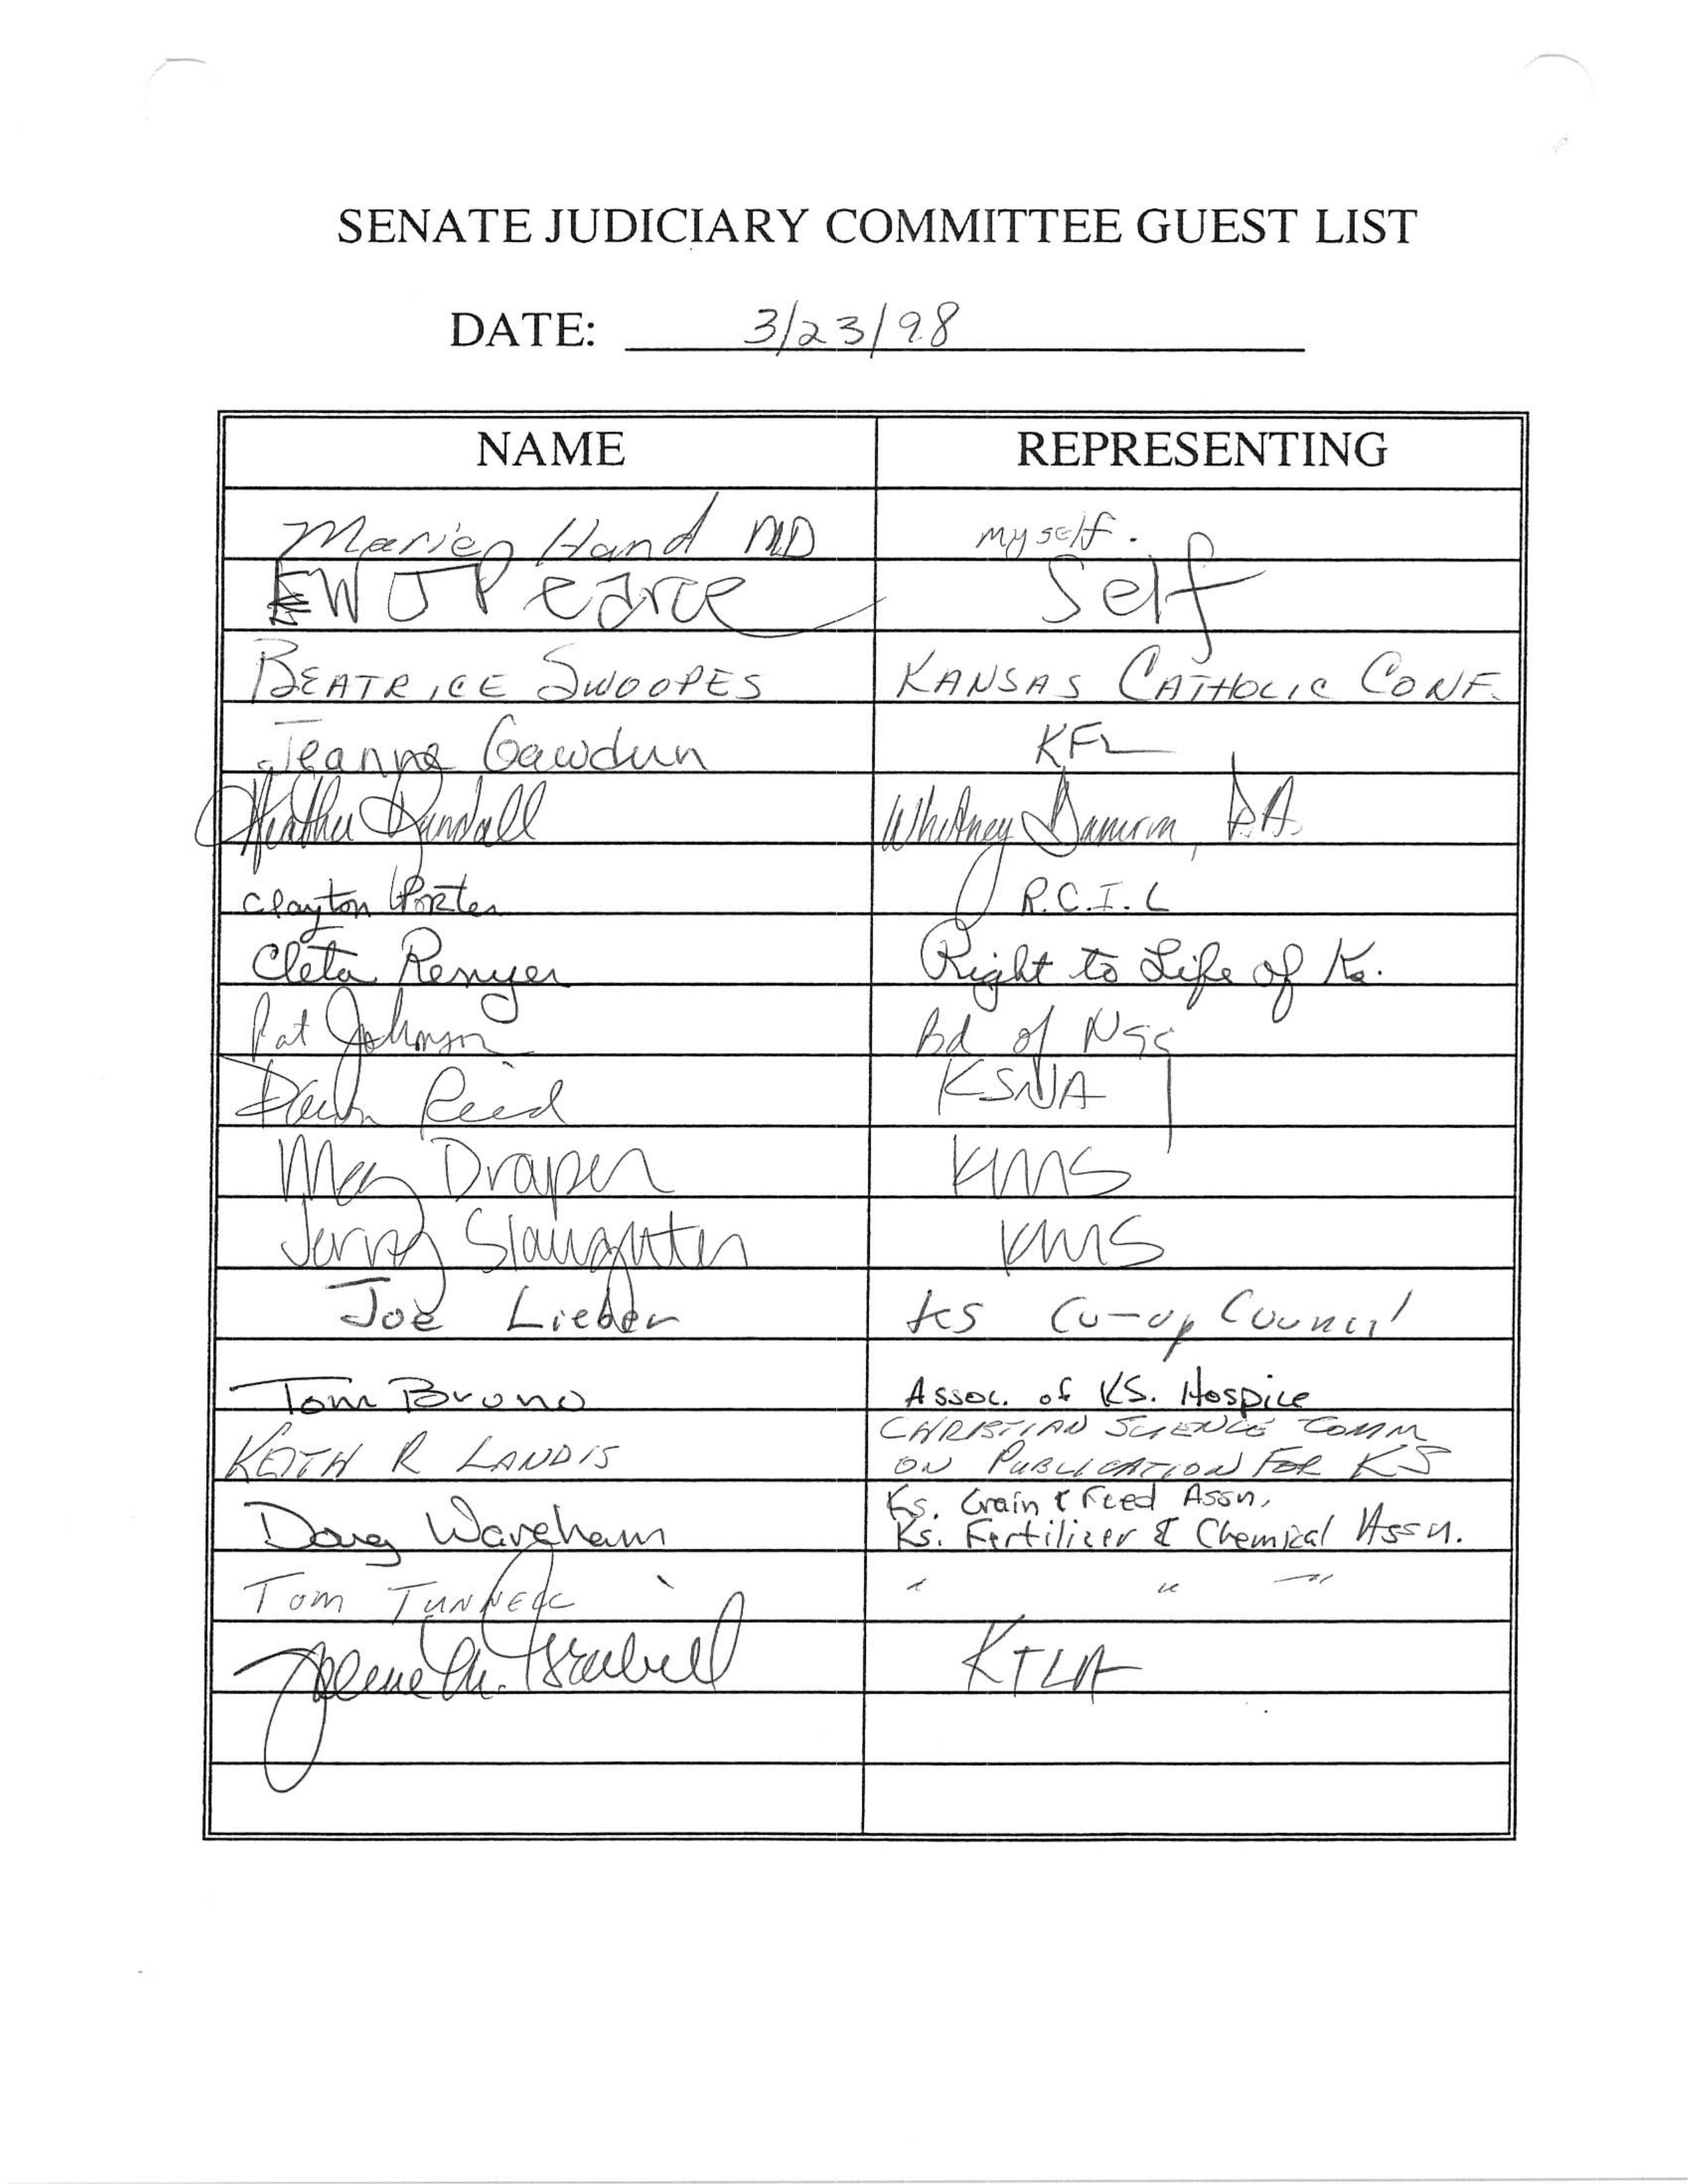 SENATE JUDICIARY COMMITTEE GUEST LIST
DATE: 3/23/98
NAME REPRESENTING
Hand MD myself.
EWJ Pearce Self
BEATRICE SWOOPES KANSAS CATHOLIC CONF.
Jeanne Gawdun KFL
Heather Randall Whitney Damron, P.A.
Clayton Porter R.C.I.L
Cleta Renyer Right to Life of Ks.
Pat Johnson Bd of Nsg
Dawn Reid KSNA
Meg Draper KMS
Jerry Slaughter KMS
Joe Lieber KS Co-op Council
Tom Bruno Assoc. of KS. Hospice
KEITH R LANDIS CHRISTIAN SCIENCE COMM
ON PUBLICATION FOR KS
Doug Wareham Ks. Grain & Feed Assn,
Ks. Fertilizer & Chemical Assn.
TOM TUNNELL " " "
KTLA